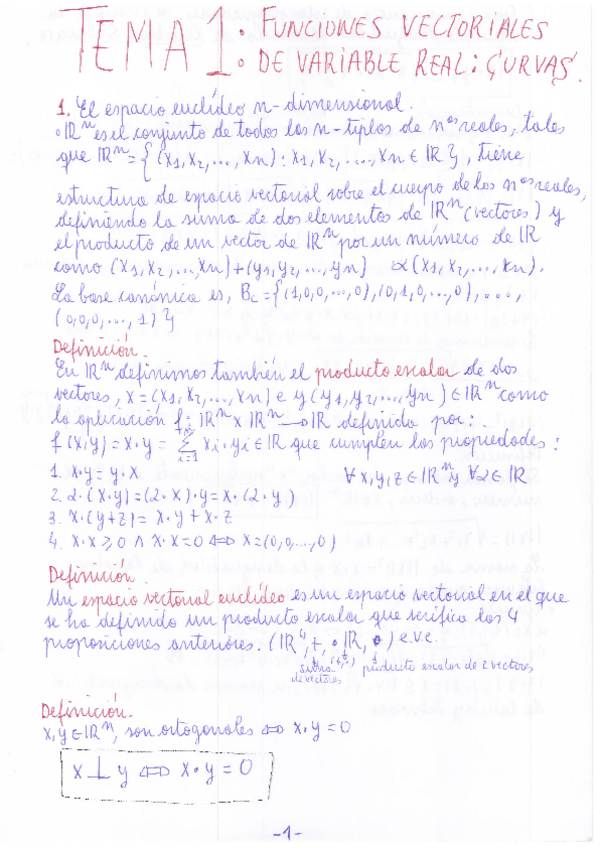 TEMA 1: FUNCIONES VECTORIALES
DE VARIABLE REAL: CURVAS.
1. El espacio euclídeo n-dimensional.
∘ℝⁿ es el conjunto de todos los n-tiplos de nᵒˢ reales, tales
que ℝⁿ = { (x₁, x₂, ..., xn) : x₁, x₂, ..., xn ∈ ℝ }, tiene
estructura de espacio vectorial sobre el cuerpo de los nᵒˢ reales,
definiendo la suma de dos elementos de ℝⁿ (vectores) y
el producto de un vector de ℝⁿ por un número de ℝ
como (x₁, x₂, ..., xn) + (y₁, y₂, ..., yn) α(x₁, x₂, ..., xn).
La base canónica es, Bc = {(1,0,0,...,0), (0,1,0,...,0), ...,
(0,0,0,...,1)}
Definición.
En ℝⁿ definimos también el producto escalar de dos
vectores, x = (x₁, x₂, ..., xn) e y (y₁, y₂, ..., yn) ∈ ℝⁿ como
la aplicación f: ℝⁿ x ℝⁿ → ℝ definida por:
f(x,y) = x·y = Σ xi·yi ∈ ℝ que cumplen las propiedades:
i=1
1. x·y = y·x ∀x,y,z ∈ ℝⁿ y ∀α ∈ ℝ
2. α·(x·y) = (α·x)·y = x·(α·y)
3. x·(y+z) = x·y + x·z
4. x·x ≥ 0 ∧ x·x = 0 ⟺ x = (0,0,...,0)
Definición.
Un espacio vectorial euclídeo es un espacio vectorial en el que
se ha definido un producto escalar que verifica las 4
proposiciones anteriores. (ℝ⁴, +, ∘ℝ, •) e.v.e.
producto escalar de 2 vectores
de vectores
Definición.
x,y ∈ ℝⁿ, son ortogonales ⟺ x·y = 0
x ⊥ y ⟺ x·y = 0
-1-